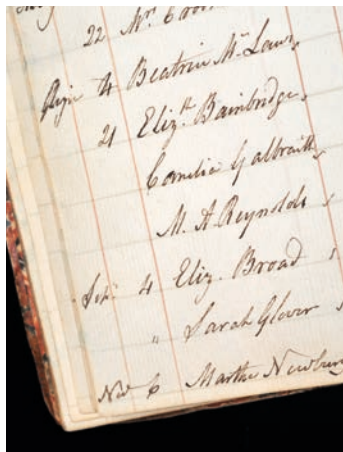 22 Mrs
4 Beatrin McLaws,
21 Elizth. Bainbridge,
Camilia Galbraith,
M. A Reynolds,
4 Eliz. Broad,
" Sarah Glover,
Nov 6 Martha Newbury